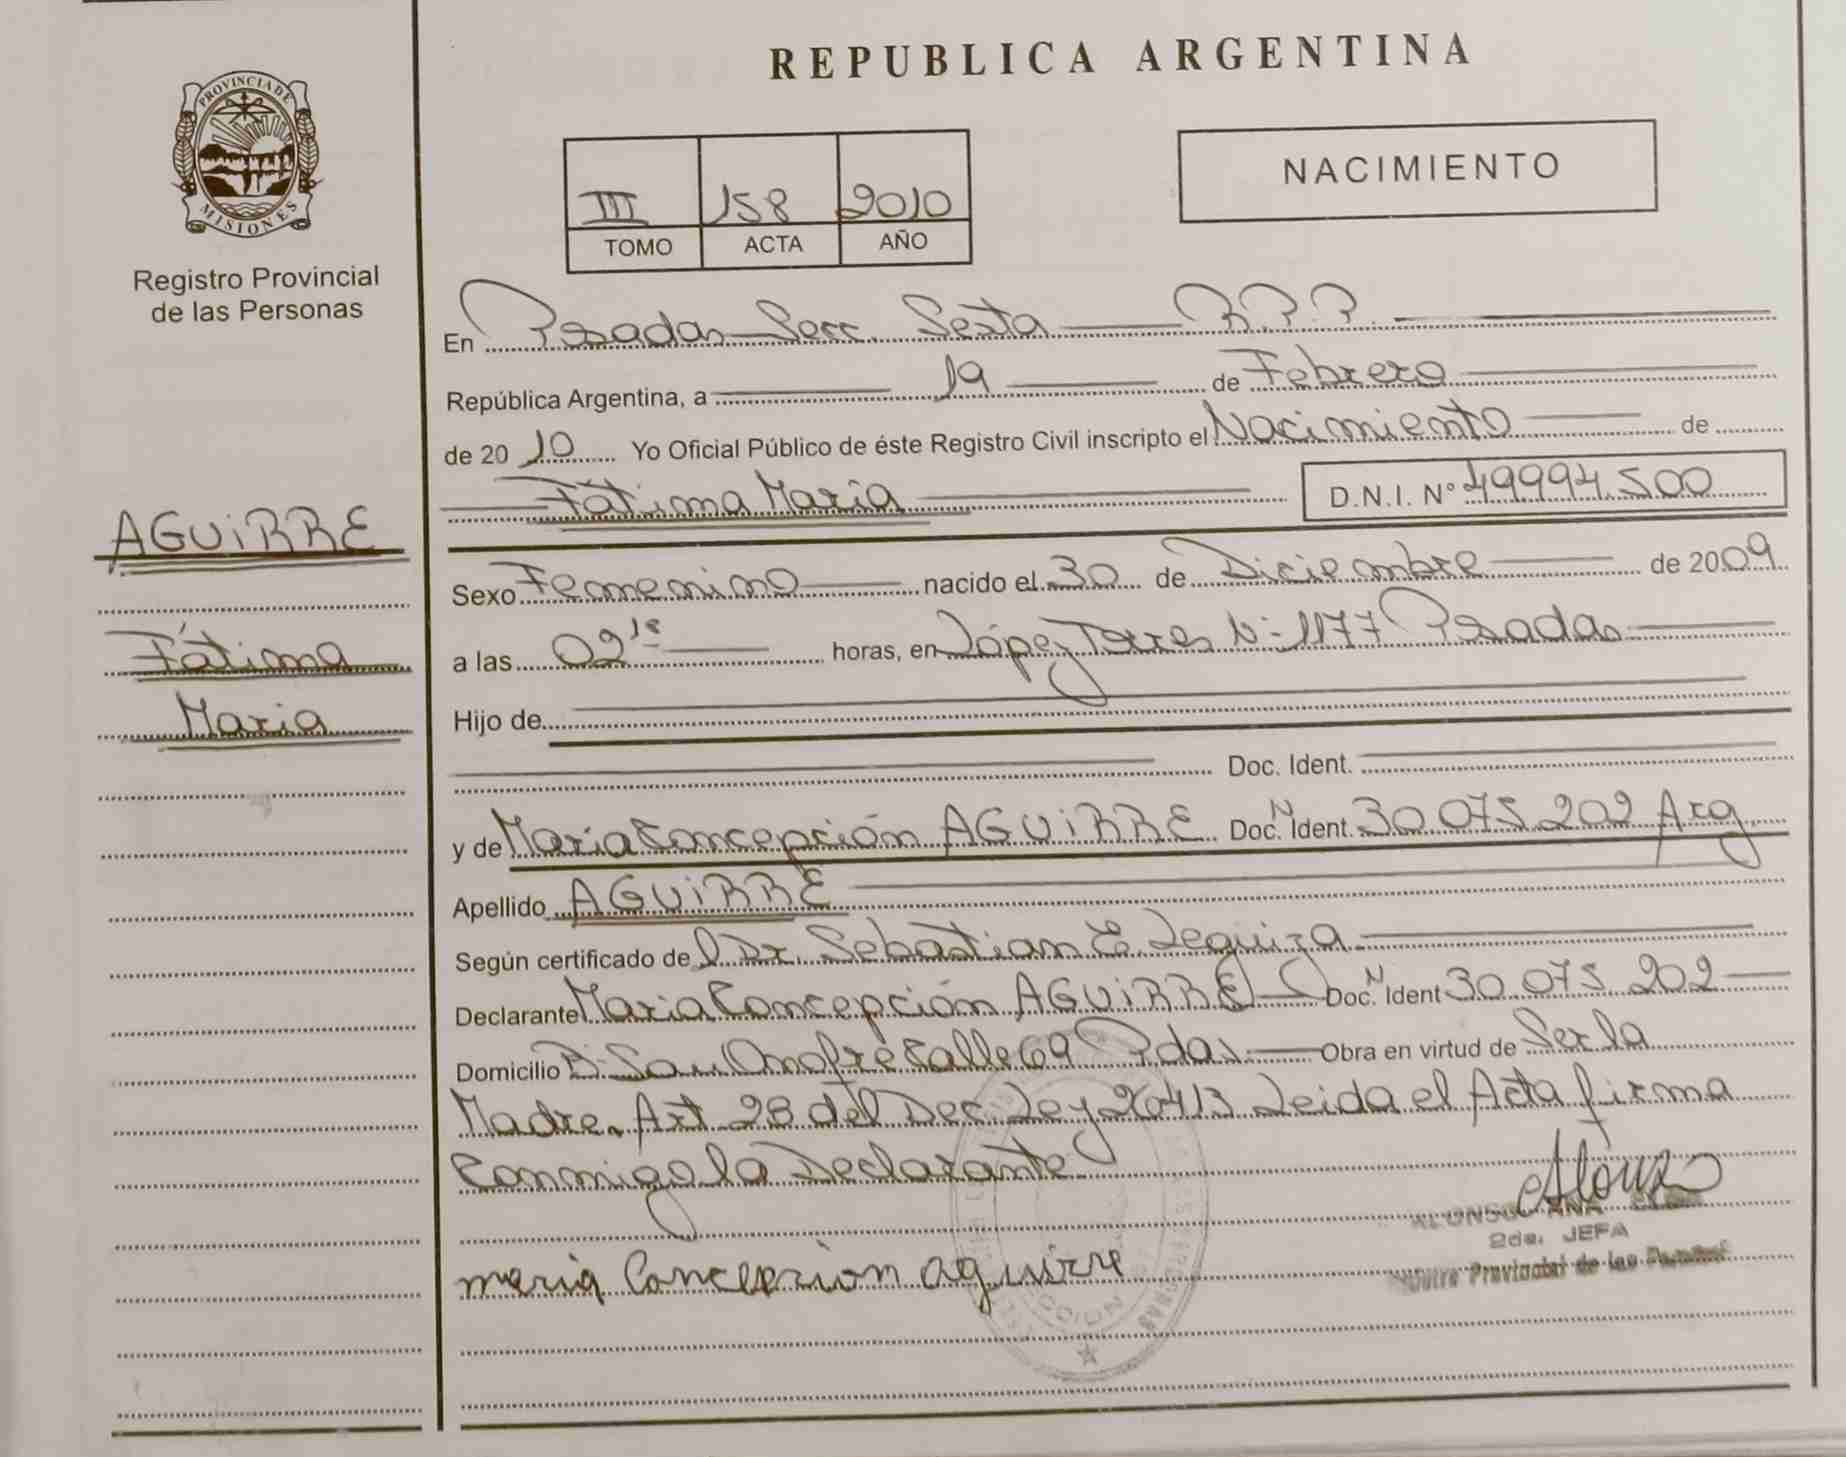 REPUBLICA ARGENTINA
PROVINCIA DE
MISIONES
Registro Provincial
de las Personas
III 158 2010
TOMO ACTA AÑO
NACIMIENTO
AGUiRRE
Fátima
Maria
En Posadas Secc. Sexta R.P.P.
República Argentina, a 19 de Febrero
de 2010 Yo Oficial Público de éste Registro Civil inscripto el Nacimiento de
Fátima María D.N.I. Nº 49994.500
Sexo Femenino nacido el 30 de Diciembre de 2009
a las 02 18 horas, en López Torres Nº 1177 Posadas
Hijo de
Doc. Ident.
y de María Concepción AGUiRRE Doc. N Ident. 30.075.202 Arg
Apellido AGUiRRE
Según certificado del Dr. Sebastian E. Leguiza
Declarante María Concepción AGUiRRE Doc. N Ident 30.075.202
Domicilio Bº San Onofre Calle 69 Pdas. Obra en virtud de Ser la
Madre. Art 28 del Dec. Ley 20413 Leida el Acta firma
Conmigo la Declarante
maria Concepzion aguirre
ALONSO ANA
2da. JEFA
Provincial de las